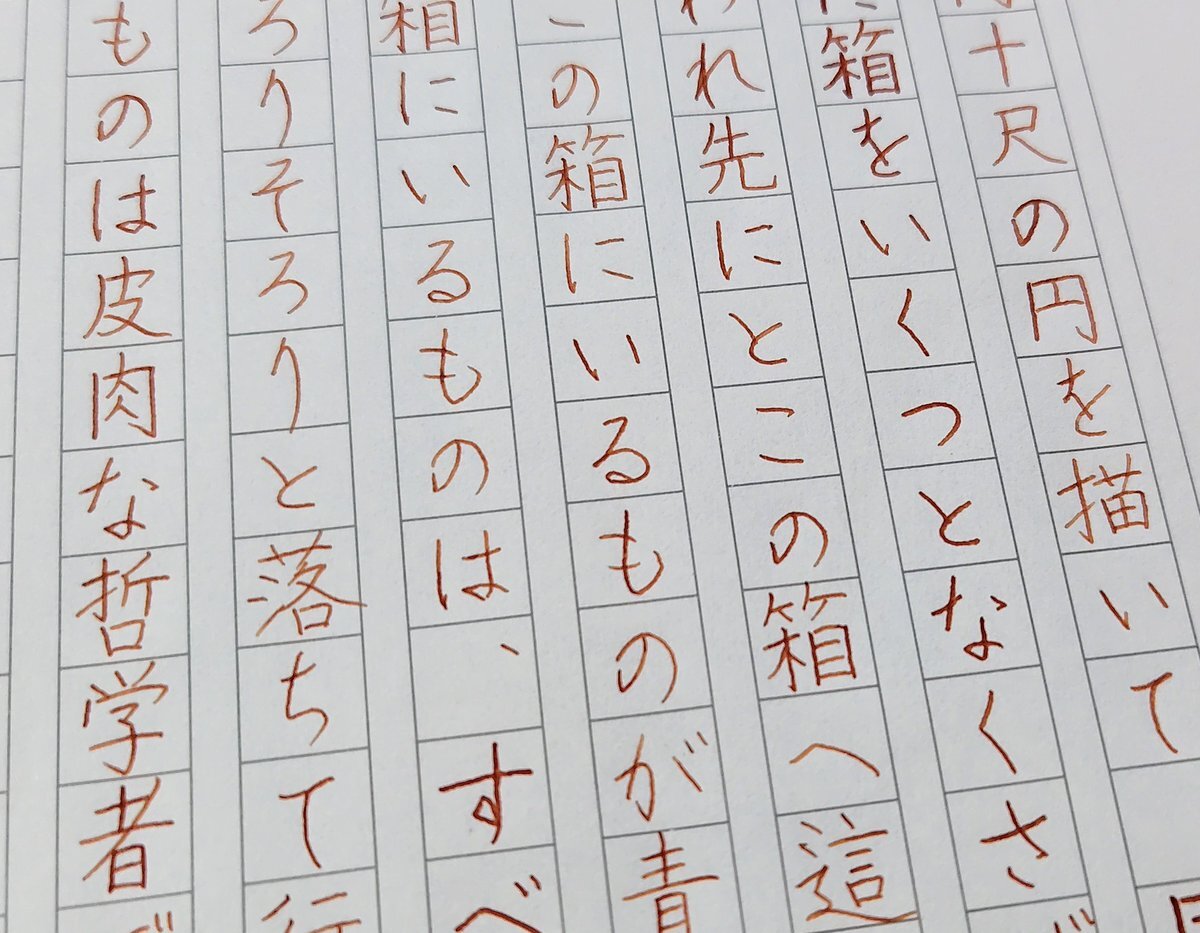 十尺の円を描いて
箱をいくつとなくさ
れ先にとこの箱へ這
この箱にいるものが青
箱にいるものは、すべ
ろりそろりと落ちて行
ものは皮肉な哲学者